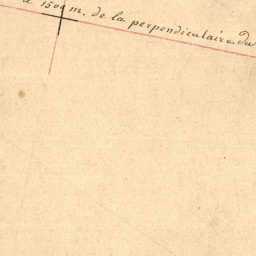 à 1500 m. de la perpendiculaire du